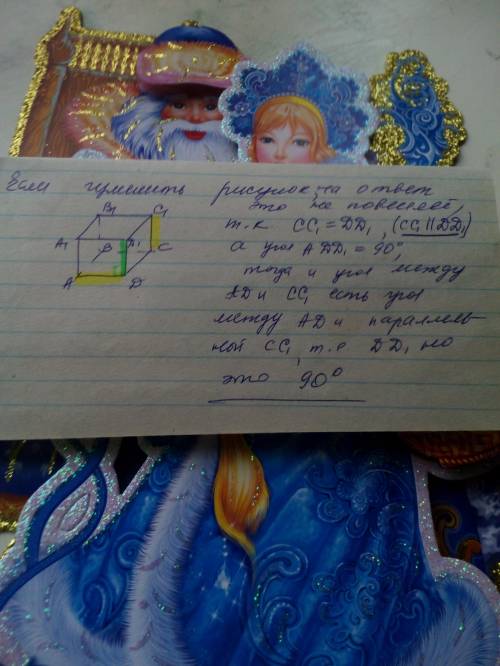 Если изменить рисунок, на ответ
это не повлияет,
т.к CC₁ = DD₁, (CC₁ || DD₁)
а угол ADD₁ = 90°,
тогда и угол между
AD и CC₁ есть угол
между AD и параллель-
ной CC₁, т.е DD₁ но
это 90°
B₁ C₁
A₁ D₁
B C
A D